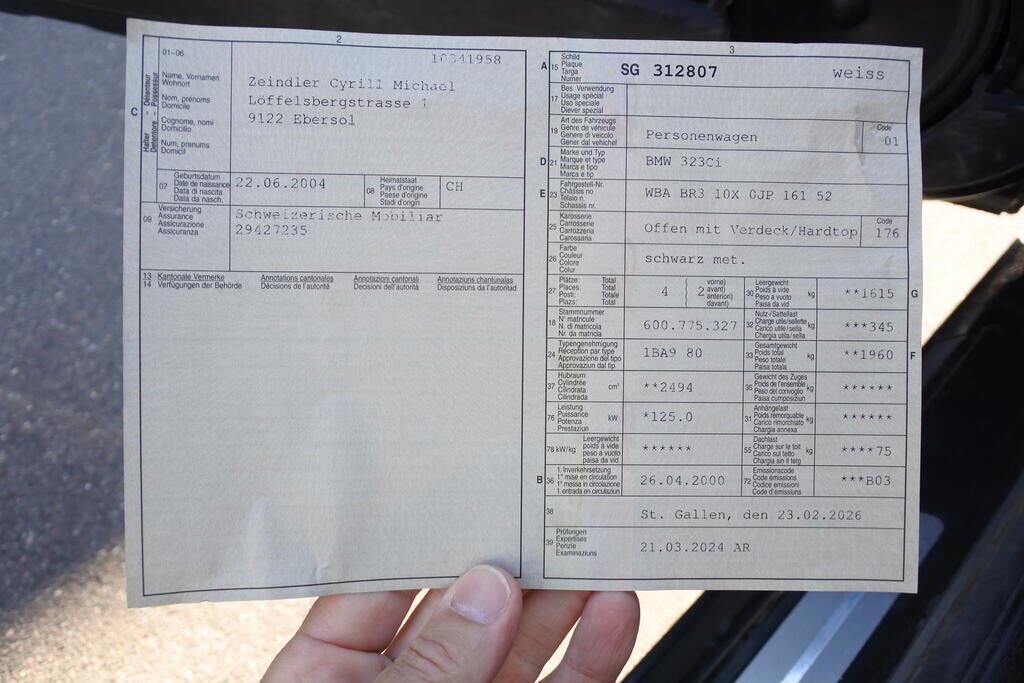 2
10341958
C
01-06
Halter Détenteur
Detentore Possessur
Name, Vornamen
Wohnort
Nom, prénoms
Domicile
Cognome, nomi
Domicilio
Num, prenums
Domicil
Zeindler Cyrill Michael
Löffelsbergstrasse 1
9122 Ebersol
07
Geburtsdatum
Date de naissance
Data di nascita
Data da nasch.
22.06.2004
08
Heimatstaat
Pays d'origine
Paese d'origine
Stadi d'origin
CH
09
Versicherung
Assurance
Assicurazione
Assicuranza
Schweizerische Mobiliar
29427235
13 Kantonale Vermerke Annotations cantonales Annotazioni cantonali Annotaziuns chantunalas
14 Verfügungen der Behörde Décisions de l'autorité Decisioni dell'autorità Disposiziuns da l'autoritad
3
A
15
Schild
Plaque
Targa
Numer
SG 312807 weiss
17
Bes. Verwendung
Usage spécial
Uso speciale
Diever spezial
19
Art des Fahrzeugs
Genre de véhicule
Genere di veicolo
Gener dal vehichel
Personenwagen
Code
01
D
21
Marke und Typ
Marque et type
Marca e tipo
Marca e tip
BMW 323Ci
E
23
Fahrgestell-Nr.
Châssis no
Telaio n.
Schassis nr.
WBA BR3 10X 0JP 161 52
25
Karosserie
Carrosserie
Carrozzeria
Carossaria
Offen mit Verdeck/Hardtop
Code
176
26
Farbe
Couleur
Colore
Colur
schwarz met.
27
Plätze: Total
Places: Total
Posti: Totale
Plazs: Total
4
2
vorne)
avant)
anteriori)
davant)
30
Leergewicht
Poids à vide
Peso a vuoto
Paisa da vid
kg
**1615
G
18
Stammnummer
N° matricule
N. di matricola
Nr. da matricla
600.775.327
32
Nutz-/Sattellast
Charge utile/sellette
Carico utile/sella
Chargia utila/sella
kg
***345
24
Typengenehmigung
Réception par type
Approvazione del tipo
Approvaziun dal tip
1BA9 80
33
Gesamtgewicht
Poids total
Peso totale
Paisa totala
kg
**1960
F
37
Hubraum
Cylindrée
Cilindrata
Cilindrada
cm³
**2494
35
Gewicht des Zuges
Poids de l'ensemble
Peso del convoglio
Paisa cumposiziun
kg
******
76
Leistung
Puissance
Potenza
Prestaziun
kW
*125.0
31
Anhängelast
Poids remorquable
Carico rimorchiato
Chargia annexa
kg
******
78 kW/kg
Leergewicht
poids à vide
peso a vuoto
paisa da vid
******
55
Dachlast
Charge sur le toit
Carico sul tetto
Chargia sin il tetg
kg
****75
B
36
1. Inverkehrsetzung
1re mise en circulation
1a messa in circolazione
1. entrada en circulaziun
26.04.2000
72
Emissionscode
Code émissions
Codice emissioni
Code d'emissiuns
***B03
38
St. Gallen, den 23.02.2026
39
Prüfungen
Expertises
Perizie
Examinaziuns
21.03.2024 AR